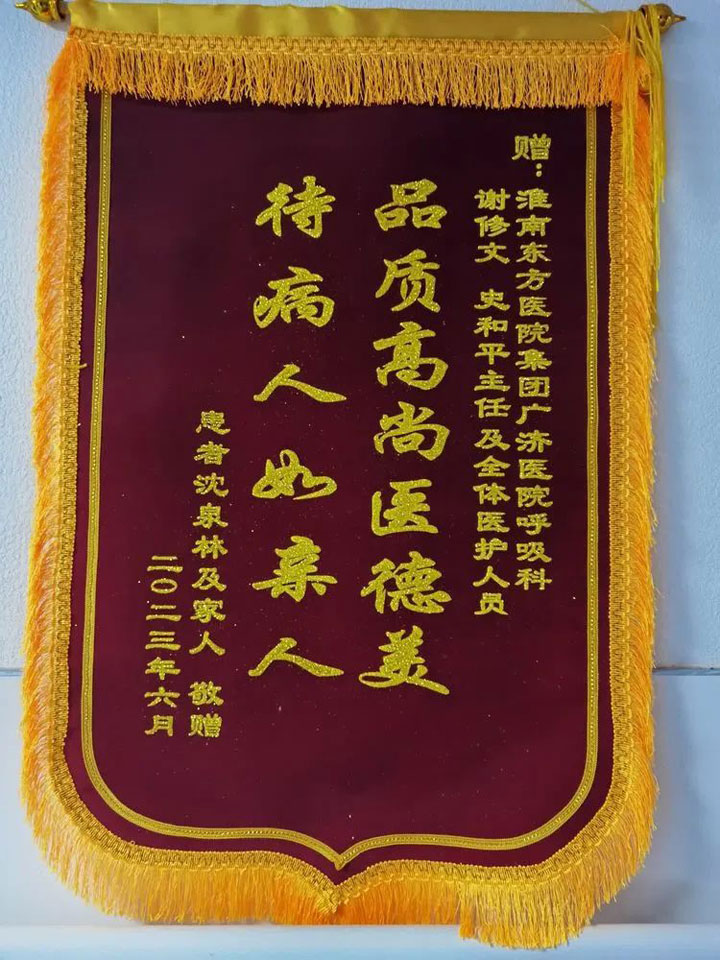 赠：淮南东方医院集团广济医院呼吸科
谢修文 史和平主任及全体医护人员
品质高尚医德美
待病人如亲人
患者沈泉林及家人 敬赠
二〇二三年六月